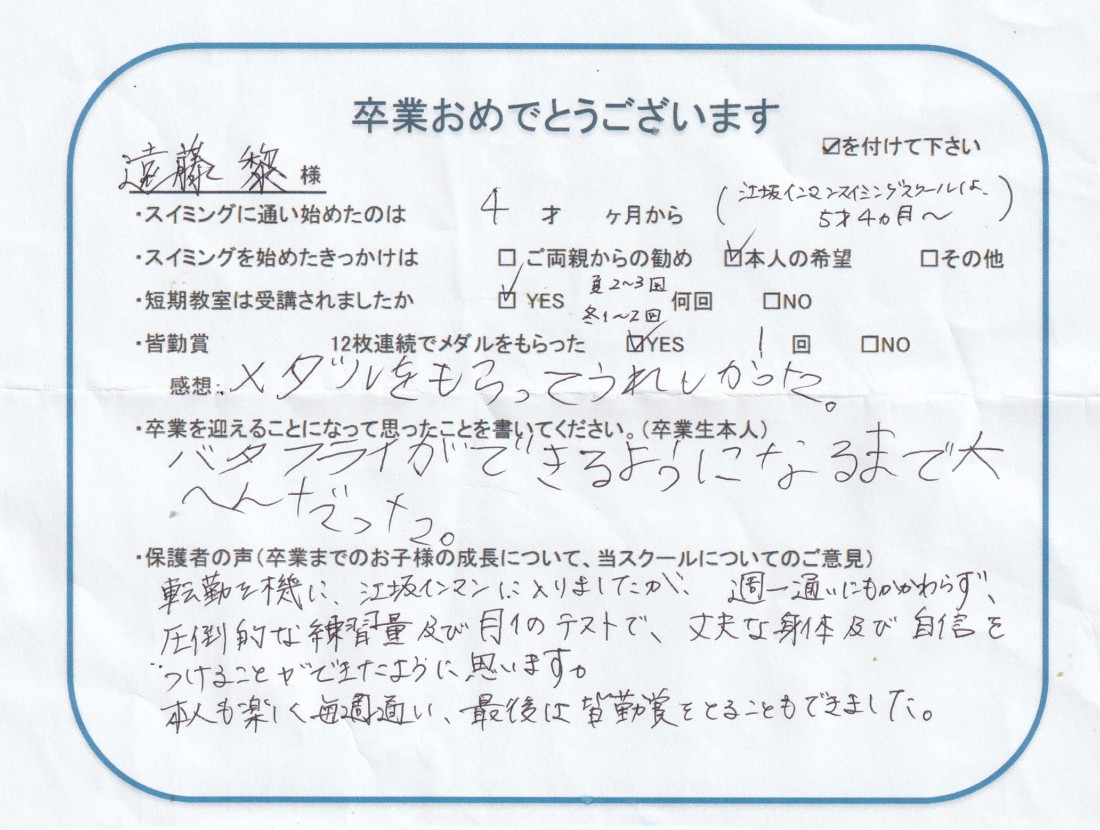 卒業おめでとうございます
☑を付けて下さい
遠藤 黎 様
・スイミングに通い始めたのは 4 才 ヶ月から (江坂インマンスイミングスクールは、
5才4ヵ月〜)
・スイミングを始めたきっかけは □ご両親からの勧め ☑本人の希望 □その他
・短期教室は受講されましたか ☑ YES 夏2〜3回 何回 □NO
冬1〜2回
・皆勤賞 12枚連続でメダルをもらった ☑YES 1 回 □NO
感想: メダルをもらってうれしかった。
・卒業を迎えることになって思ったことを書いてください。(卒業生本人)
バタフライができるようになるまで大
へんだった。
・保護者の声(卒業までのお子様の成長について、当スクールについてのご意見)
転勤を機に、江坂インマンに入りましたが、週一通いにもかかわらず、
圧倒的な練習量及び月1のテストで、丈夫な身体及び自信を
つけることができたように思います。
本人も楽しく毎週通い、最後は皆勤賞をとることもできました。